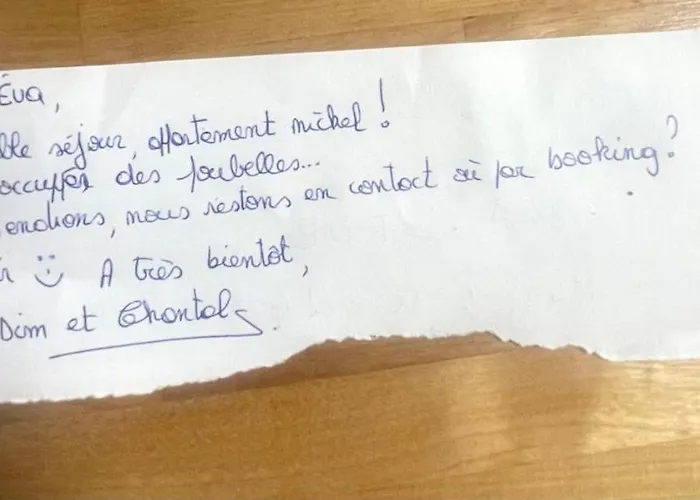 Éva,
ble séjour, appartement nickel !
occuper des poubelles...
endions, nous restons en contact où par booking ?
r :) A très bientôt,
Dim et Chantal